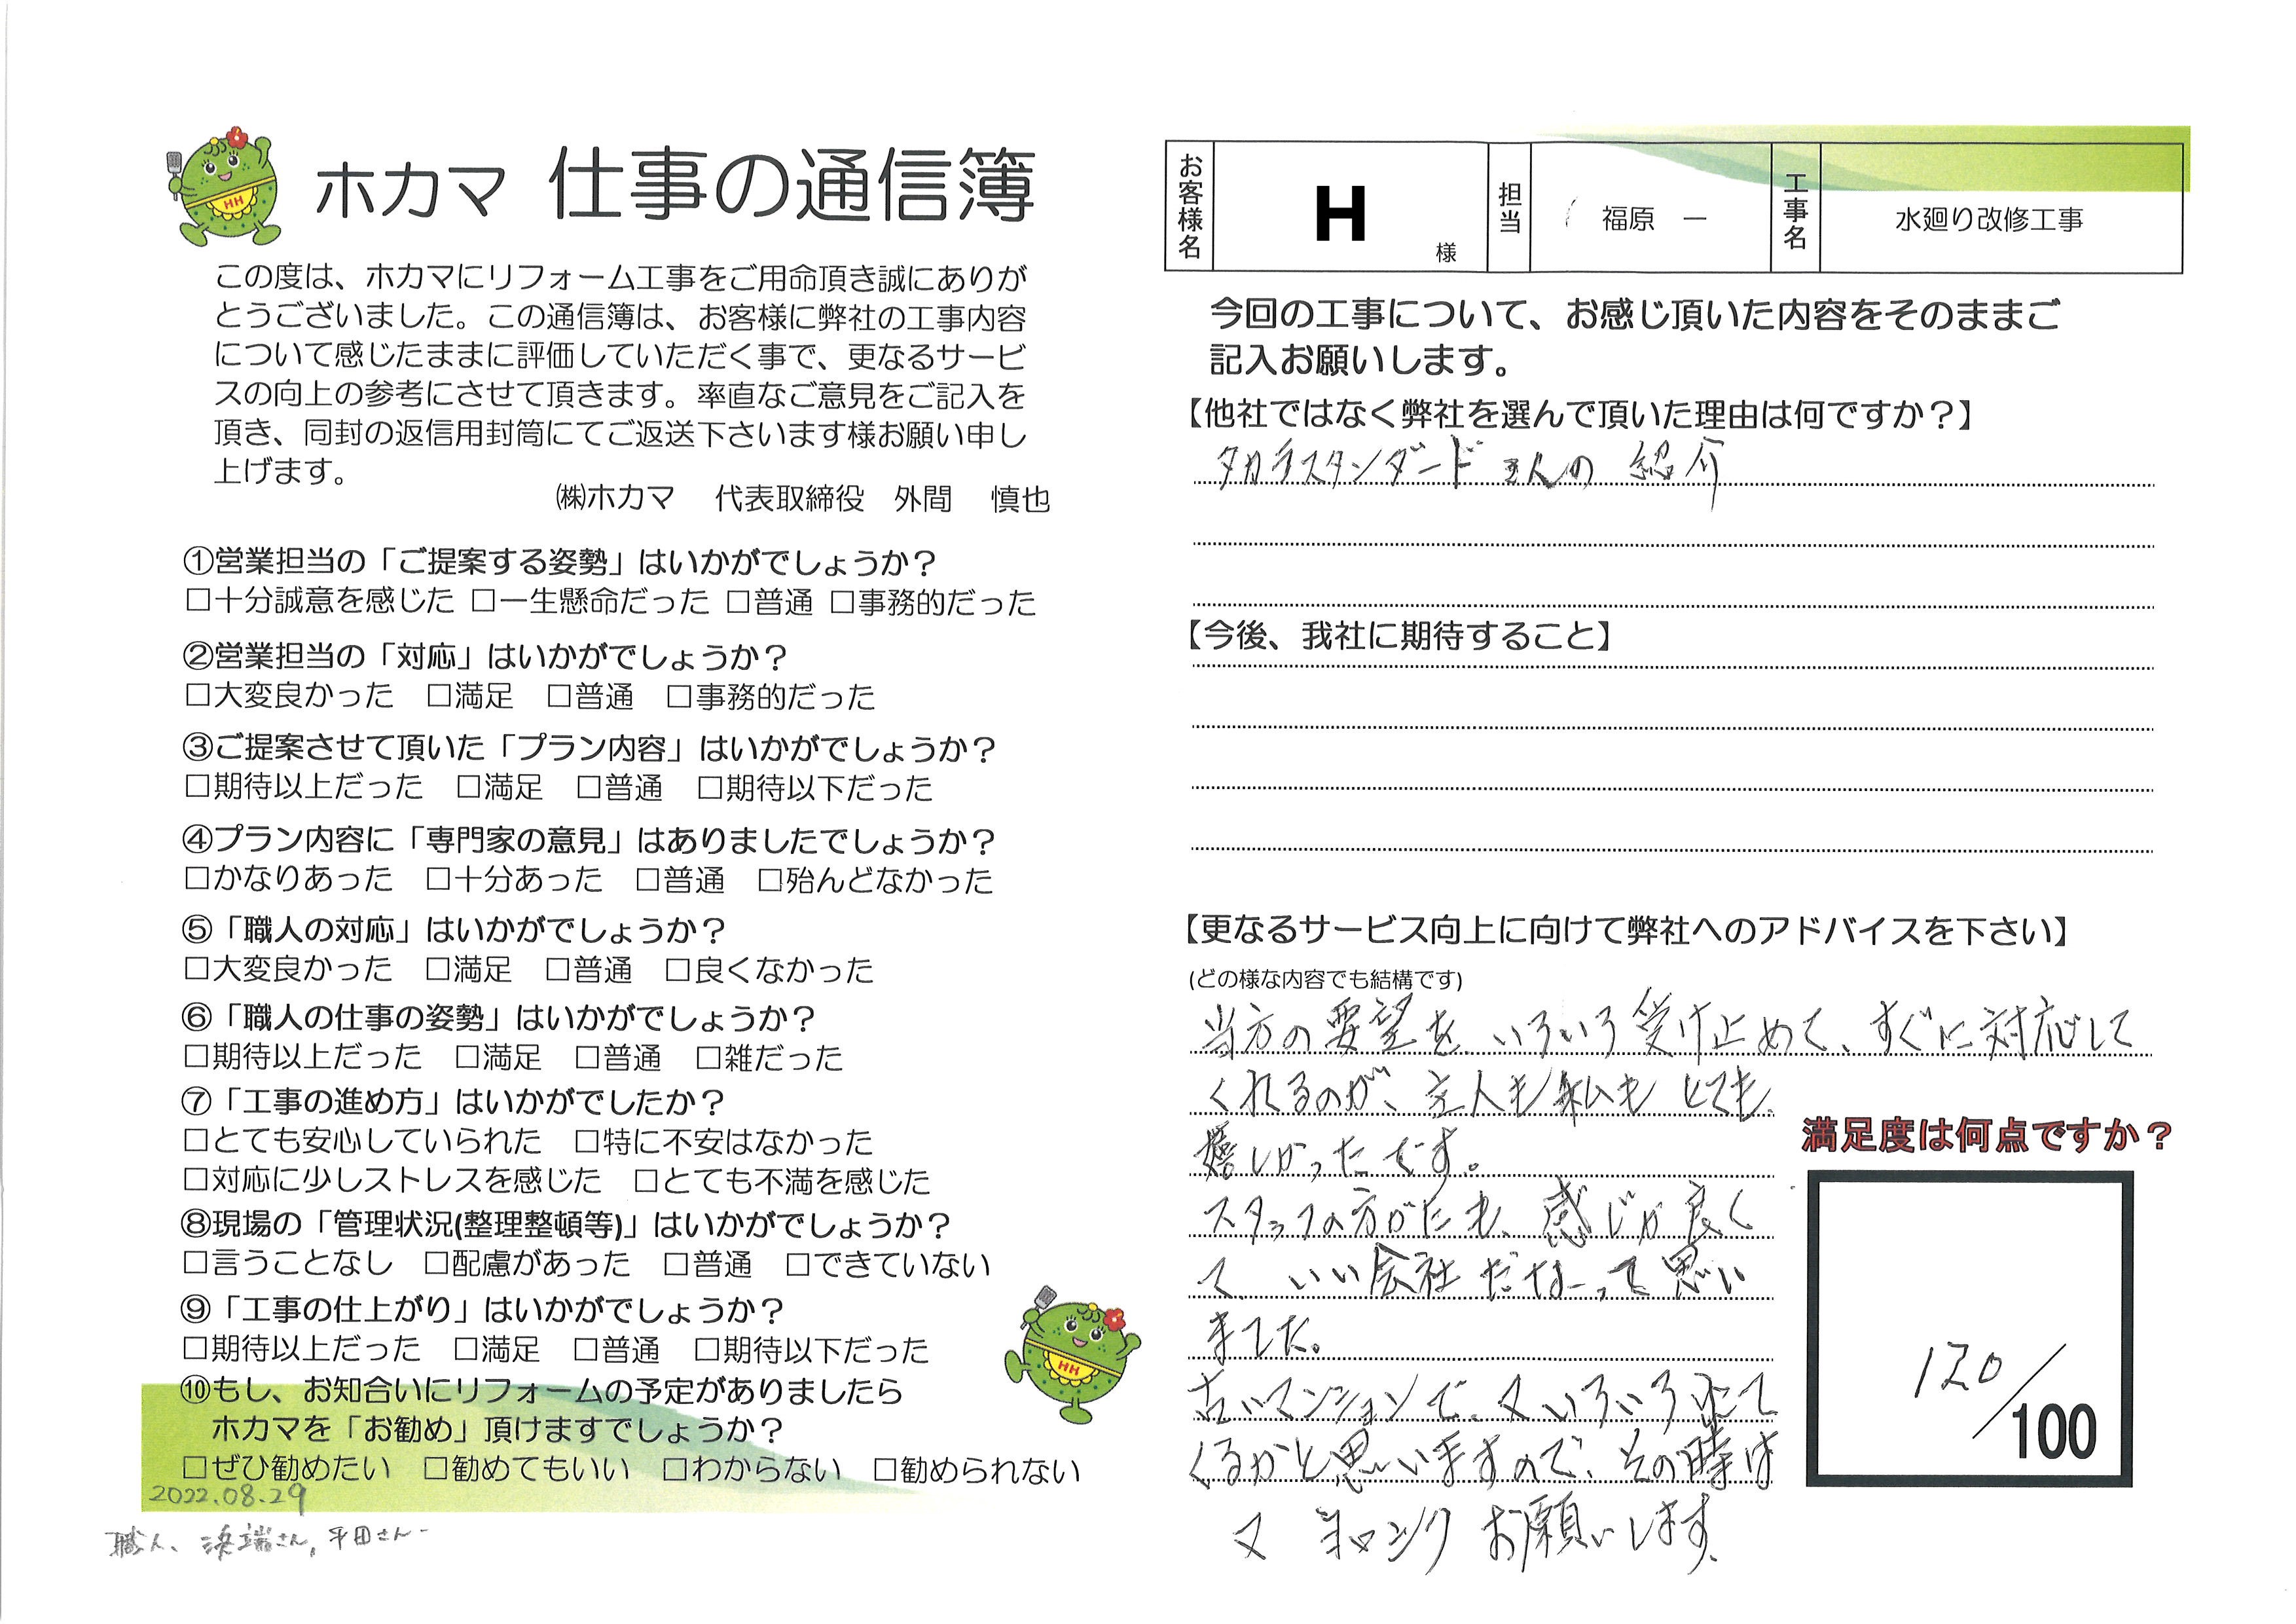 ホカマ 仕事の通信簿
この度は、ホカマにリフォーム工事をご用命頂き誠にありが
とうございました。この通信簿は、お客様に弊社の工事内容
について感じたままに評価していただく事で、更なるサービ
スの向上の参考にさせて頂きます。率直なご意見をご記入を
頂き、同封の返信用封筒にてご返送下さいます様お願い申し
上げます。
㈱ホカマ 代表取締役 外間 慎也
①営業担当の「ご提案する姿勢」はいかがでしょうか？
□十分誠意を感じた □一生懸命だった □普通 □事務的だった
②営業担当の「対応」はいかがでしょうか？
□大変良かった □満足 □普通 □事務的だった
③ご提案させて頂いた「プラン内容」はいかがでしょうか？
□期待以上だった □満足 □普通 □期待以下だった
④プラン内容に「専門家の意見」はありましたでしょうか？
□かなりあった □十分あった □普通 □殆んどなかった
⑤「職人の対応」はいかがでしょうか？
□大変良かった □満足 □普通 □良くなかった
⑥「職人の仕事の姿勢」はいかがでしょうか？
□期待以上だった □満足 □普通 □雑だった
⑦「工事の進め方」はいかがでしたか？
□とても安心していられた □特に不安はなかった
□対応に少しストレスを感じた □とても不満を感じた
⑧現場の「管理状況(整理整頓等)」はいかがでしょうか？
□言うことなし □配慮があった □普通 □できていない
⑨「工事の仕上がり」はいかがでしょうか？
□期待以上だった □満足 □普通 □期待以下だった
HH
⑩もし、お知合いにリフォームの予定がありましたら
ホカマを「お勧め」頂けますでしょうか？
□ぜひ勧めたい □勧めてもいい □わからない □勧められない
2022.08.29
職人、浜端さん, 平田さん
お客様名 H 様 担当 福原 一 工事名 水廻り改修工事
今回の工事について、お感じ頂いた内容をそのままご
記入お願いします。
【他社ではなく弊社を選んで頂いた理由は何ですか？】
タカラスタンダードさんの紹介
【今後、我社に期待すること】
【更なるサービス向上に向けて弊社へのアドバイスを下さい】
(どの様な内容でも結構です)
当方の要望を、いろいろ受け止めて、すぐに対応して
くれるのが、主人も私もとても、
嬉しかったです。
スタッフの方がたも、感じが良く
て、いい会社だなーって思い
ました。
古いマンションで、又いろいろ出て
くるかと思いますので、その時は
又 ヨロシク お願いします。
満足度は何点ですか？
120/100